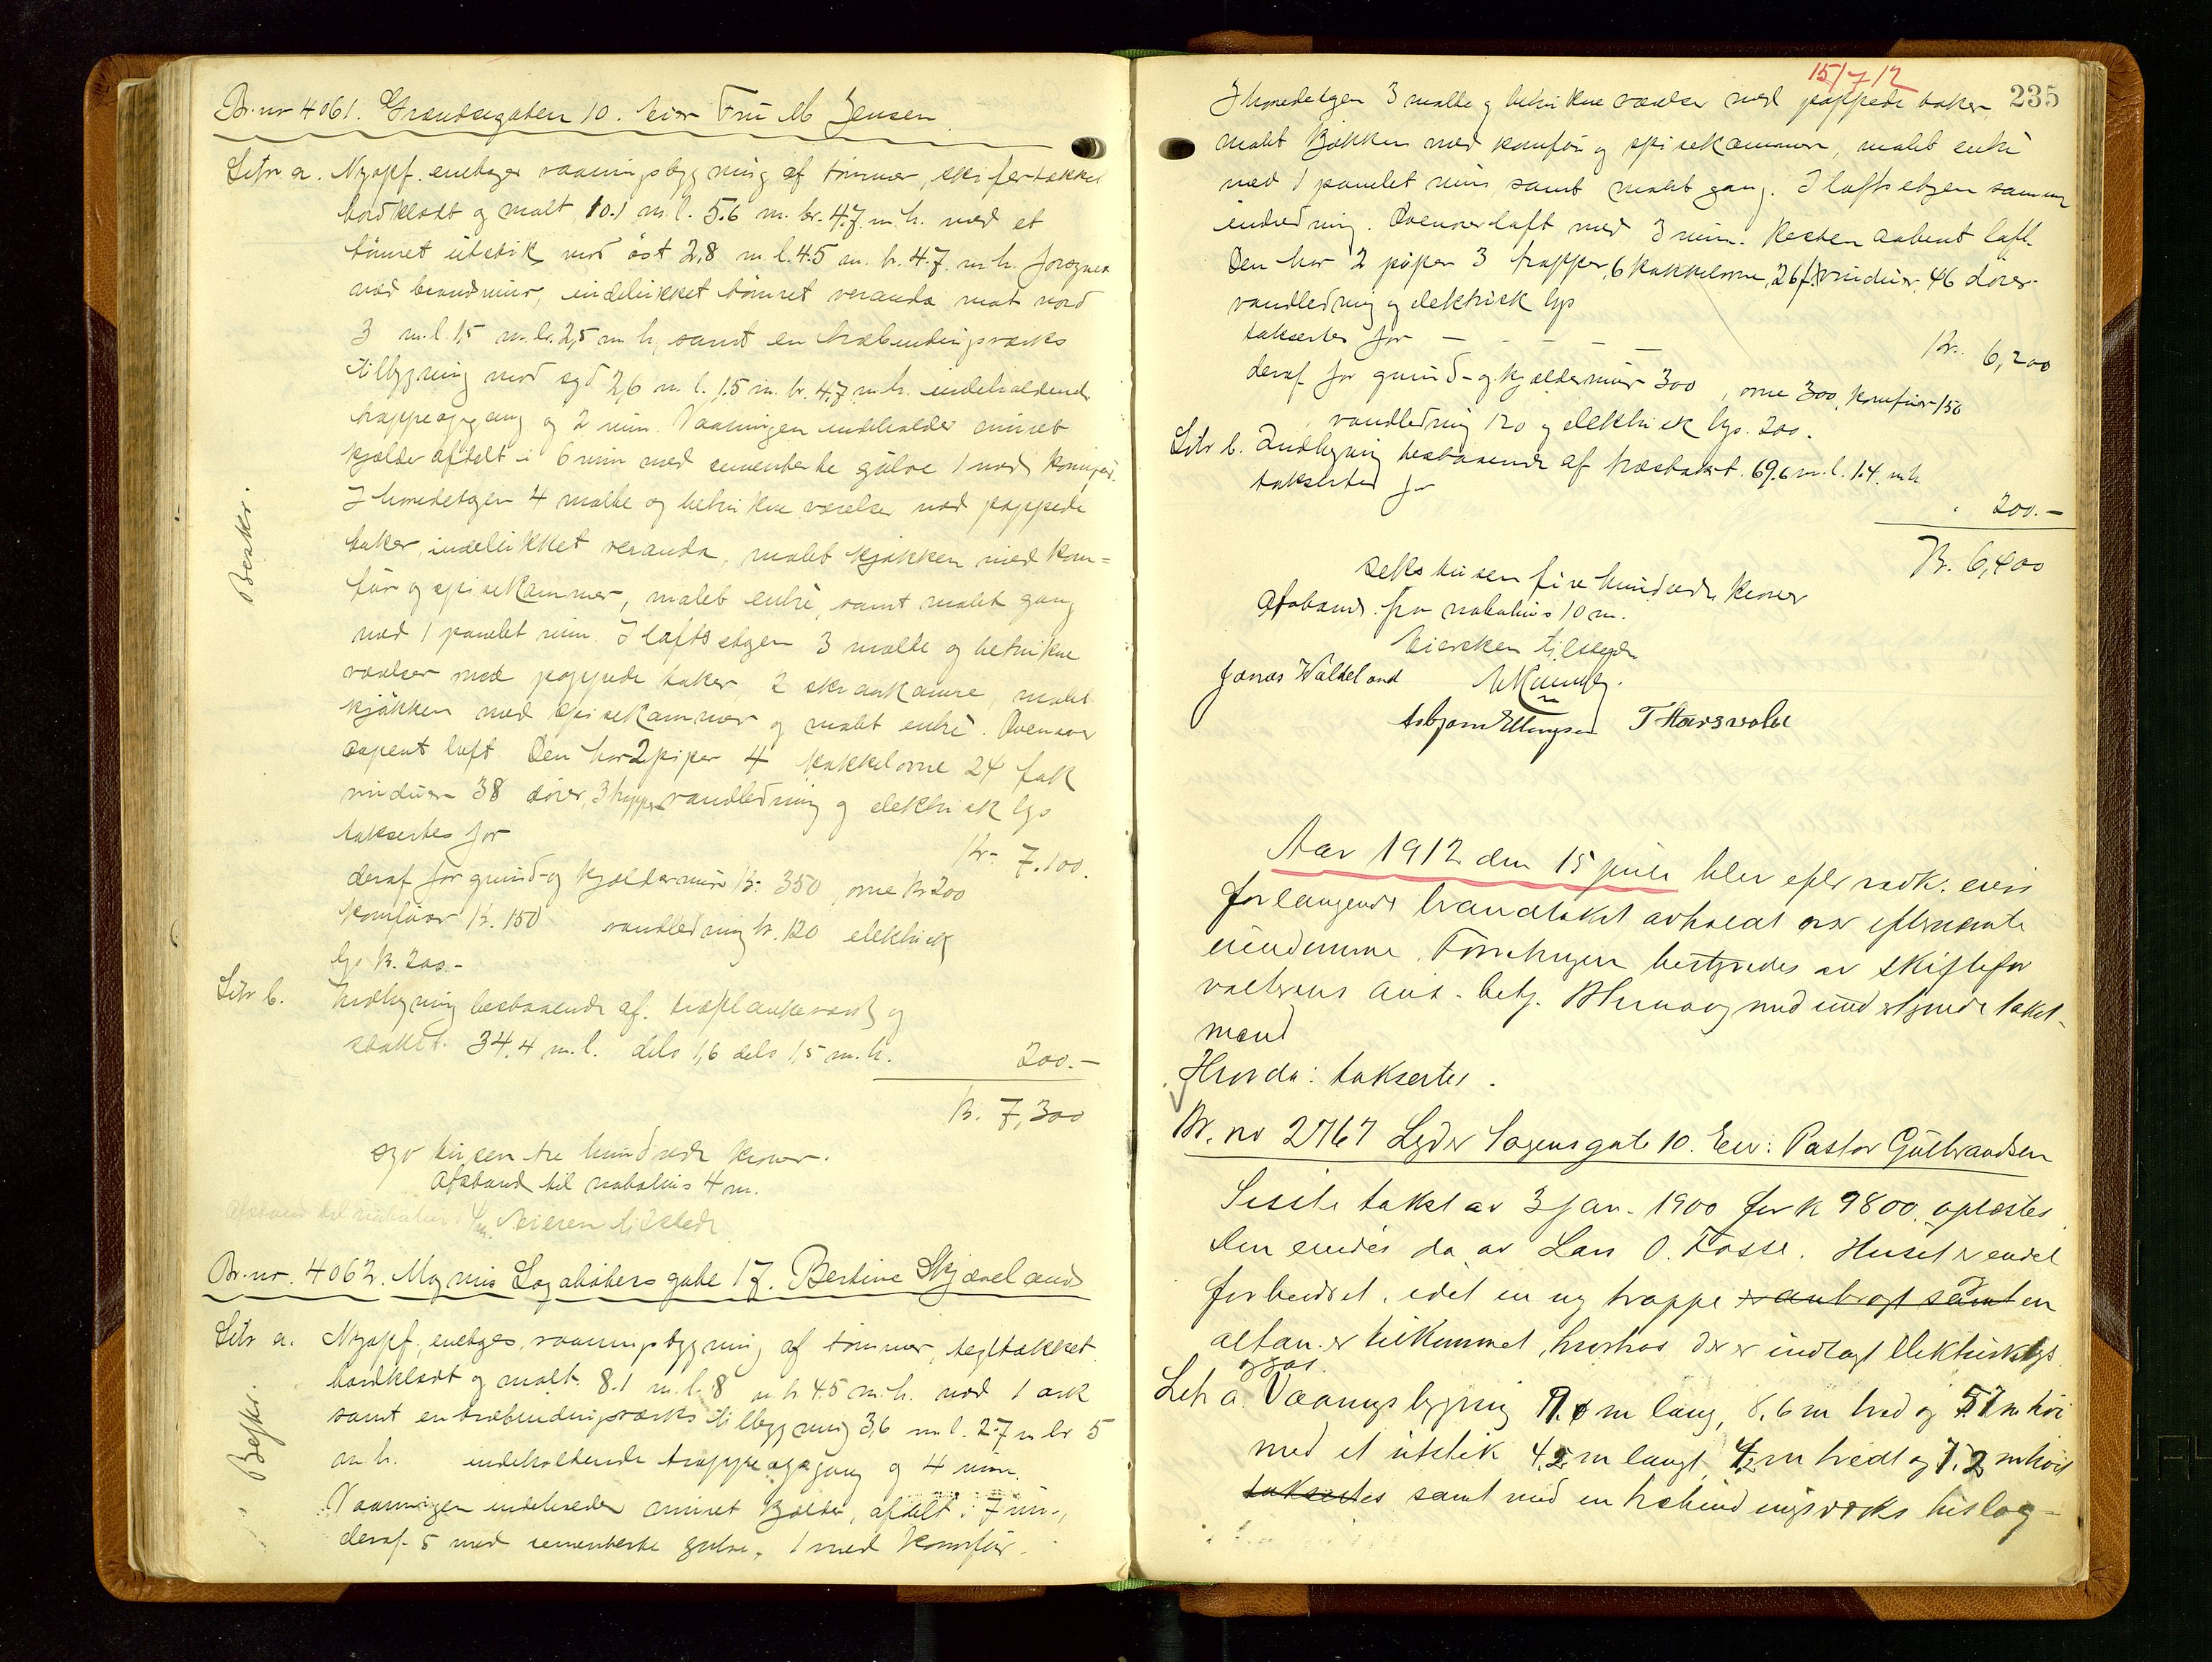 Br. nr 4061. Grændsegaden 10. Eier Fru M Jensen
Litr a. Nyopf. enetages vaaningsbygning af tømmer, skifertækket
bordklædt og malt 10.1 m. l. 5.6 m. br. 4.7 m. h. med et
tømret utstik mod øst 2,8 m. l. 4.5 m. br. 4.7. m. h. forsynet
med brandmur, indelukket tømret veranda mot nord
3 m. l. 1,5 m. br. 2,5 m h, samt en træbindingsværks
tilbygning mod syd 2,6 m. l. 1.5 m. br. 4,7 m. h. indeholdende
trappeopgang og 2 rum. Vaaningen indeholder muret
kjelder afdelt i 6 rum med sementerte gulve 1 med komfur.
I hovedetagen 4 malte og betrukne værelser med pappede
taker, indelukket veranda, malet kjøkken med kom=
fur og spisekammer, malet entré, samt malet gang
med 1 panelet rum. I loftsetagen 3 malte og betrukne
værelser med pappede taker 2 skraakamre, malet
kjøkken med spisekammer og malet entré. Ovenover
aapent loft. Den har 2 piper 4 kakkelovne 24 fak
vinduer 38 dører, 3 trapper vandledning og elektrisk lys
taksertes for
Kr. 7.100.
deraf for grund- og kjældermur Kr. 350, ovne Kr 200
komfuer Kr. 150 vandledning kr. 120 elektrisk
lys Kr. 200.-
Litr b. Indhegning bestaaende af. træplankeværk og
stakit. 34.4 m. l. dels 1,6 dels 1,5 m. h. 200.-
Kr. 7,300
syv tusen tre hundrede kroner.
Afstand til nabohus 4 m.
Afstand til nabohus Eieren tilstede
Br. nr. 4062. Magnus Lagabøters gate 17. Bertine Skjæveland
Beskr.
Litr a. Nyopf, enetages, vaaningsbygning af tømmer, tegltækket
bordklædt og malt. 8.1 m. l. 8 m. br. 4.5 m. h. med 1 ark
samt en træbindingsværks tilbygning 3,6 m. l. 2.7 m br 5
m h. indeholdende trappeopgang og 4 rum.
Vaaningen indeholder muret kjelder, afdelt i 7 rum,
deraf 5 med sementerte gulve, 1 med komfur.
Beskr.
15/7 12
235
I hovedetagen 3 malte og betrukne værelser med pappede taker,
malet kjøkken med komfur og spisekammer, malet entré
med 1 panelet rum, samt malet gang. I loftsetagen samme
indredning. Ovenover loft med 3 rum. Resten aabent loft.
Den har 2 piper 3 trapper, 6 kakkelovne, 26 f. vinduer, 46 dører
vandledning og elektrisk lys
taksertes for - - - - - Kr. 6,200
deraf for grund- og kjældermur 300, ovne 300, komfur 150
vandledning 120 og elektrisk lys. 200.
Litr b. Indhegning bestaaende af træstakit. 69.6 m. l. 1.4 m h
taksertes for
200.-
Kr. 6,400
seks tusen fire hundrede kroner
Afstand fra nabohus 10 m.
Eiersken tilstede
Jonas Waldeland
Asbjørn Ellingsen T Haarsvold
Aar 1912 den 15 juli blev efter vedk. eiers
forlangende brandtakst avholdt over efternævnte
eiendomme. Forretningen bestyredes av skiftefor
valterens aut. betj. med undertegnede takst-
mænd
Hvorda: taksertes.
Br. no 2767 Lyder Sagensgate 10. Eier: Pastor Gulbrandsen
Siste takst av 3 jan. 1900 for kr 9800. oplæstes
Den eiedes da av Lars O. Fosse. Huset er endel
forbedret, idet en ny trappe er anbragt samt en
altan er tilkommet, hvorhos der er indlagt elektrisk lys
og gas.
Litr a. Vaaningsbygning 11.0 m lang, 8,6 m bred og 5,7 m høi
med et utstik 4,2 m langt, 1,2 m bredt og 7.2 m høit
taksertes samt med en træbindingsværks bislag-